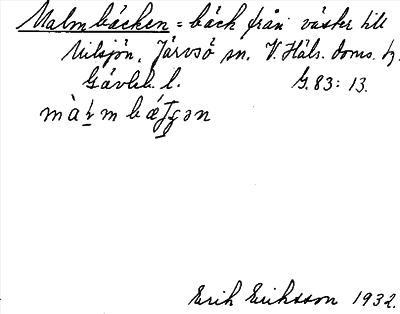 Malmbäcken = bäck från väster till
Nilsjön, Järvsö sn. V. Häls. doms. h.
Gävleb. l. G. 83: 13.
Erik Eriksson 1932.